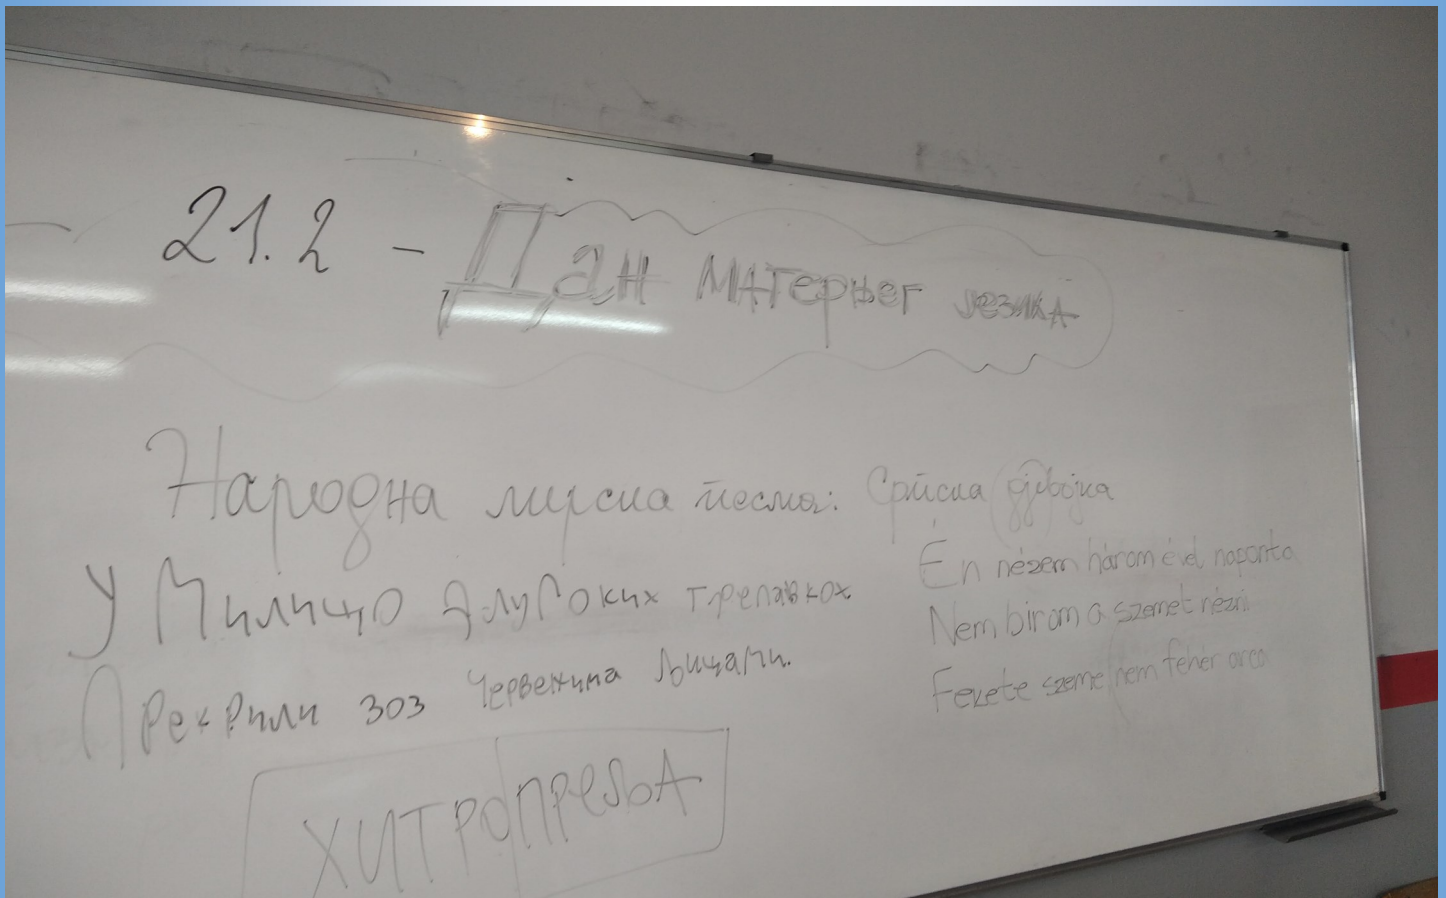 21.2 - Дан матерњег језика
Народна лирска песма: Српска дјевојка
У Милици длугоких трепавкох
Прекрили зоз червенима лыцами.
Én nézem három évet naponta
Nem birom a szemet nézni
Fekete szeme nem fehér arca
ХИТРОПРЕЉА